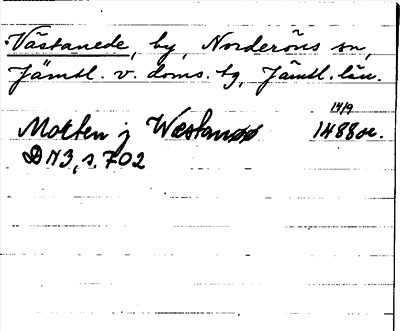 Västanede, by, Norderöns sn,
Jämtl. v. doms. tg, Jämtl. län.
14/9
Morten j Westanøø 1488 or.
DN3, s. 702